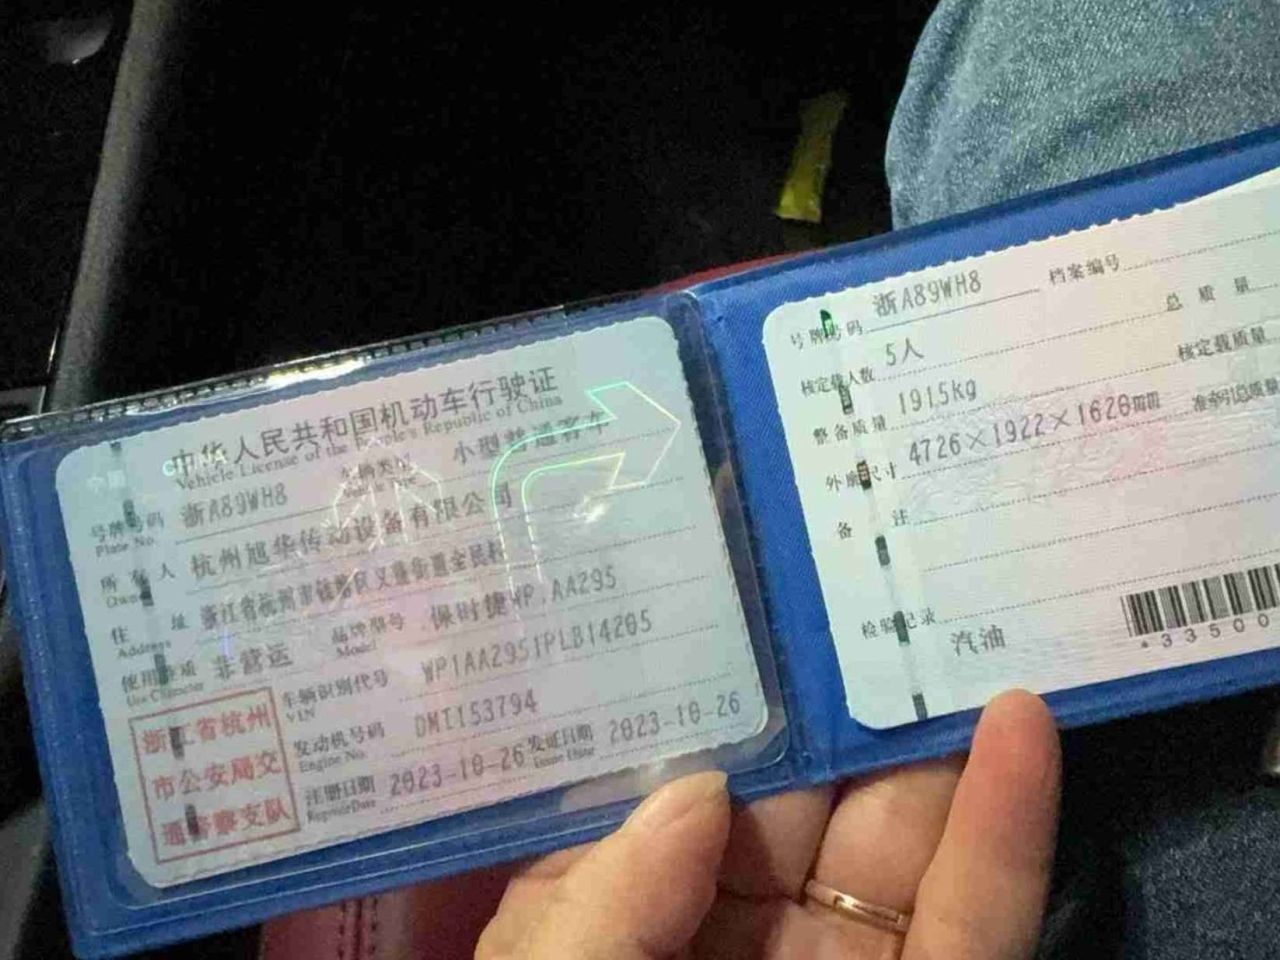 中华人民共和国机动车行驶证
Vehicle License of the People's Republic of China
号牌号码 浙A89WH8 车辆类型 小型普通客车
Plate No. Vehicle Type
所有人 杭州旭华传动设备有限公司
Owner
住 址 浙江省杭州市钱塘区义蓬街道全民村
Address
使用性质 非营运 品牌型号 保时捷WP.AA295
Use Character Model
车辆识别代号 WP1AA2951PLB14205
VIN
发动机号码 DMT153794
Engine No.
注册日期 2023-10-26 发证日期 2023-10-26
Register Date Issue Date
浙江省杭州
市公安局交
通警察支队
号牌号码 浙A89WH8 档案编号
核定载人数 5人 总质量
整备质量 1915kg 核定载质量
外廓尺寸 4726×1922×1620mm 准牵引总质量
备 注
检验记录
汽油
*33500